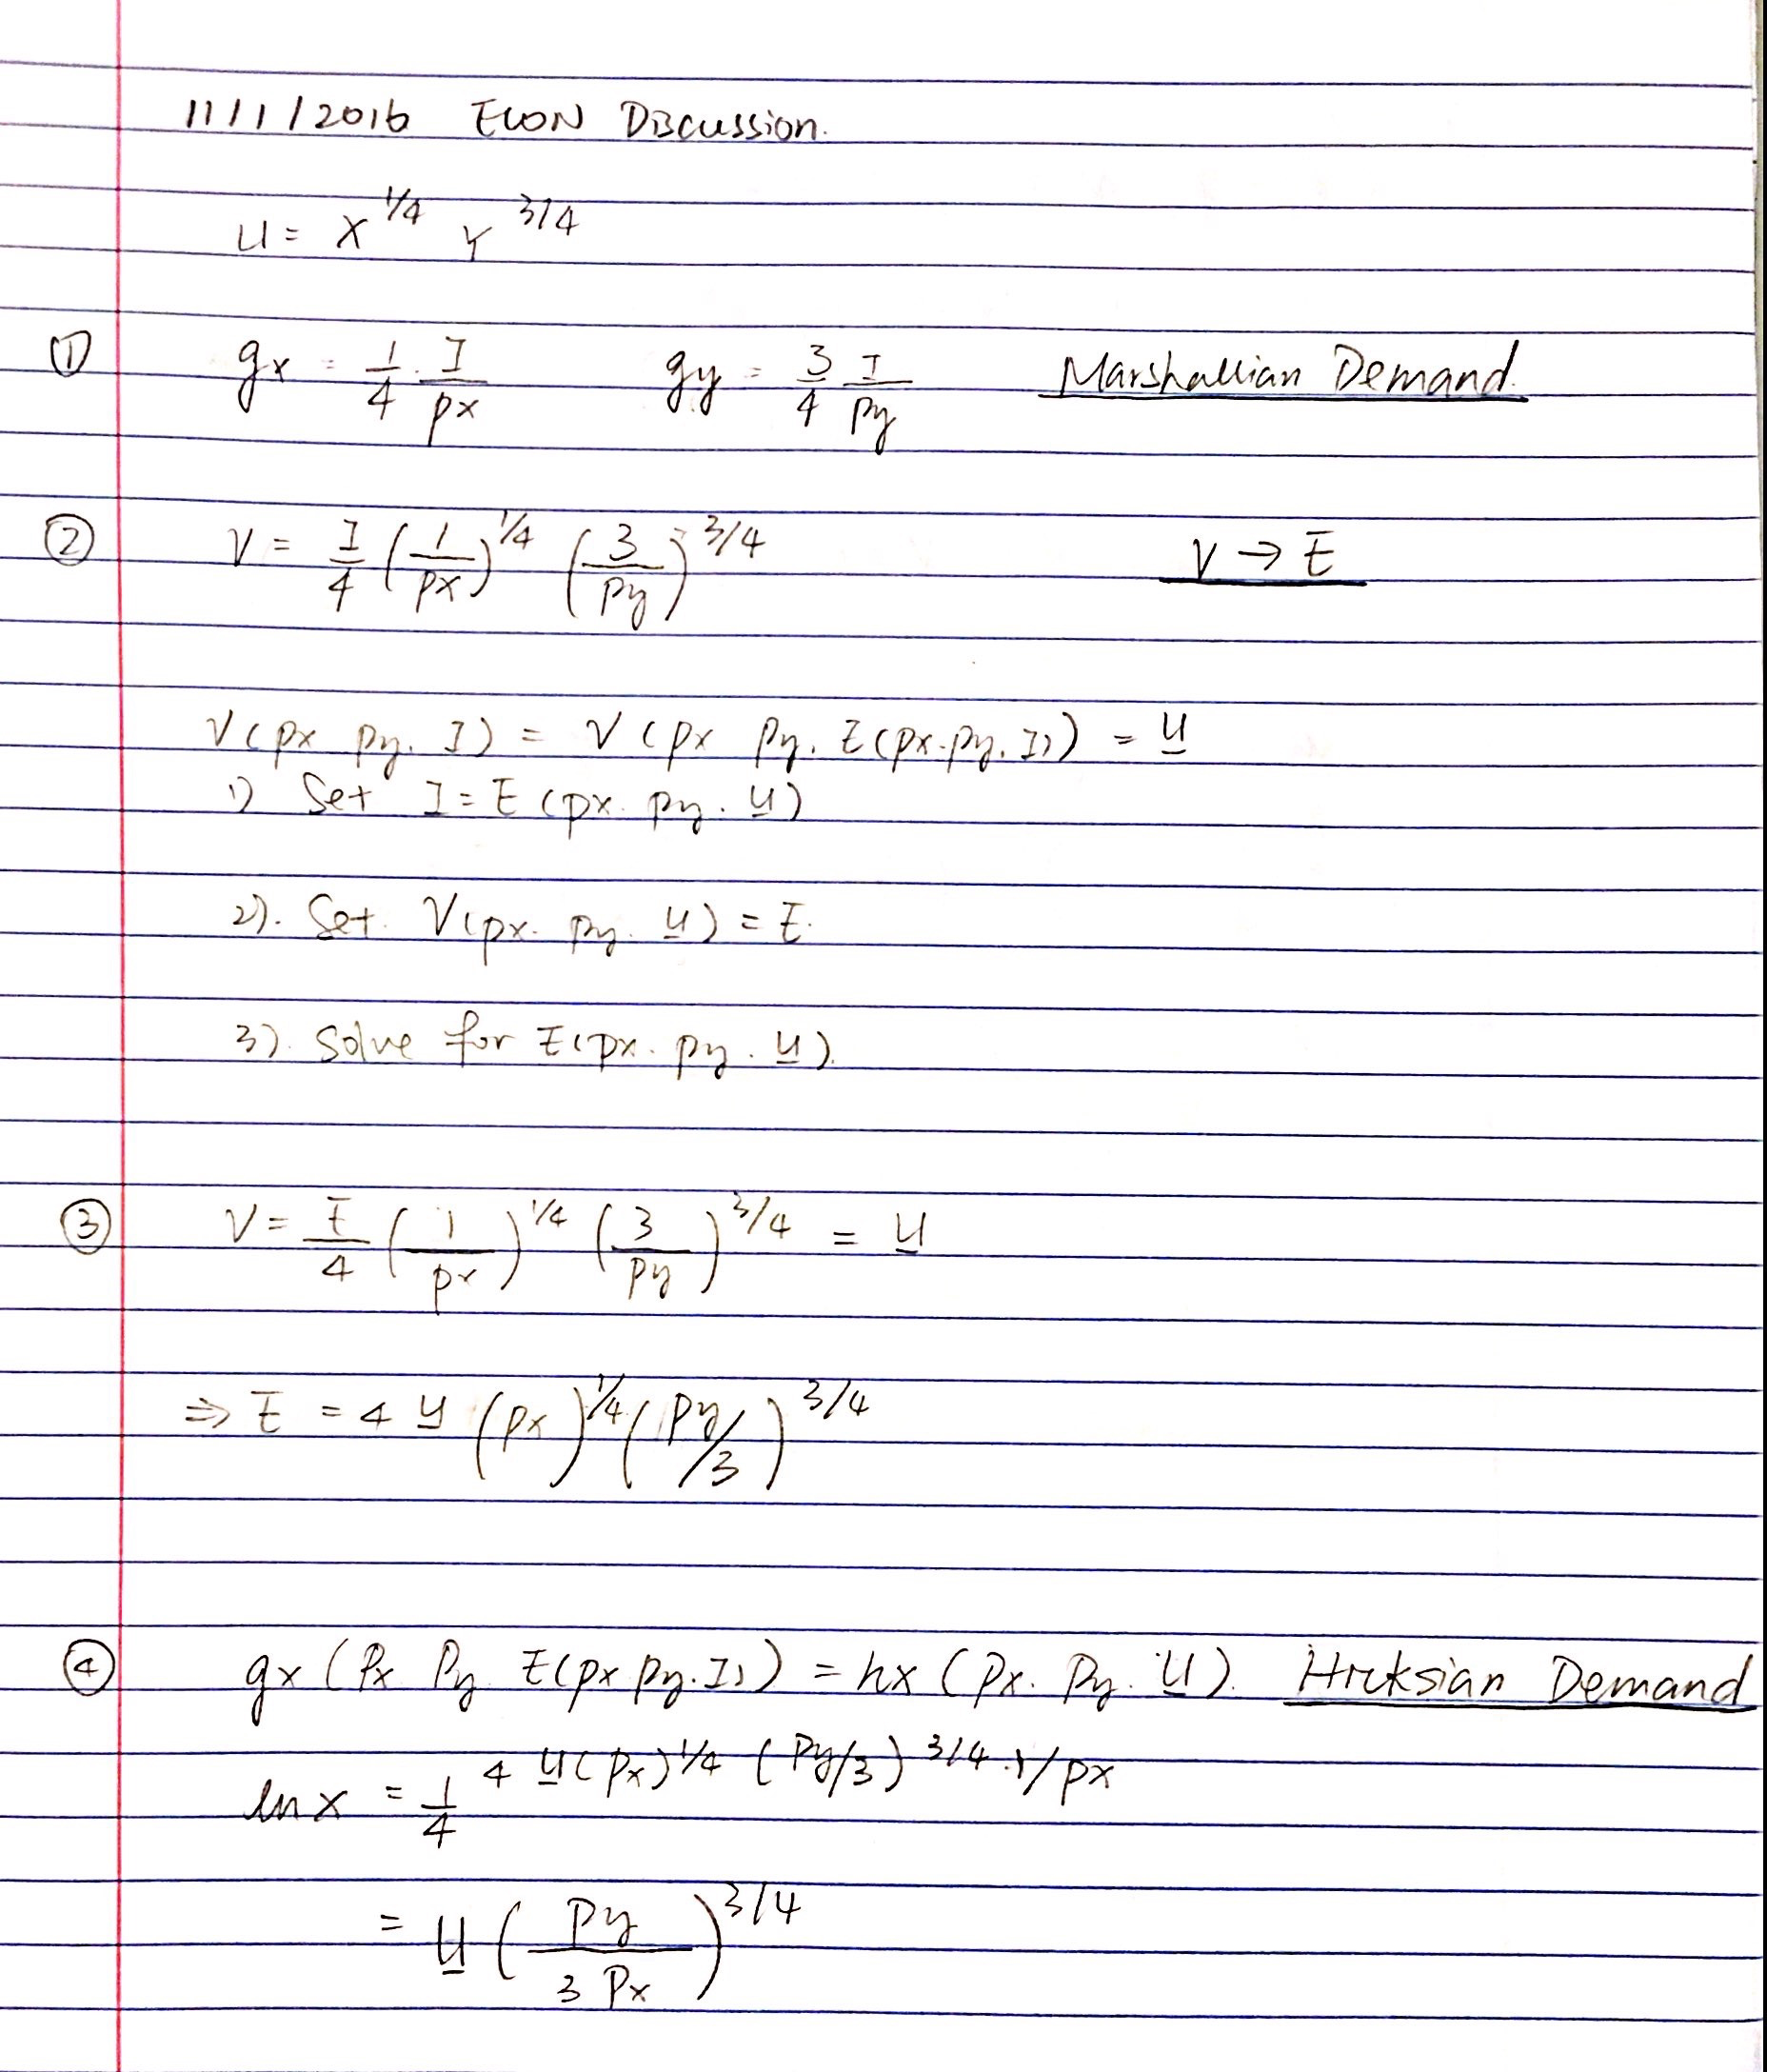 11/1/2016 ECON Discussion.
U = X^1/4 Y^3/4
① gx = 1/4 · I/px gy = 3/4 I/py Marshallian Demand.
② V = I/4 (1/px)^1/4 (3/py)^3/4 V → E
V(px py. I) = V(px py. E(px.py. I)) = U
1) Set I = E(px. py. U)
2). Set. V(px. py. U) = E.
3). Solve for E(px. py. U).
③ V = E/4 (1/px)^1/4 (3/py)^3/4 = U
⇒ E = 4 U (px)^1/4 (py/3)^3/4
④ gx (Px Py E(px py. I)) = hx (Px. Py. U). Hicksian Demand
lnx = 1/4 4 U(Px)^1/4 (Py/3)^3/4 · 1/px
= U (Py/3Px)^3/4